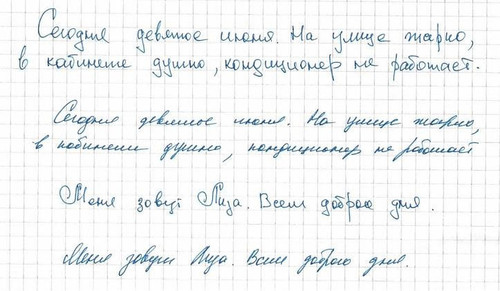 Сегодня девятое июня. На улице жарко,
в кабинете душно, кондиционер не работает.
Сегодня девятое июня. На улице жарко,
в кабинете душно, кондиционер не работает
Меня зовут Лиза. Всем доброго дня.
Меня зовут Лиза. Всем доброго дня.